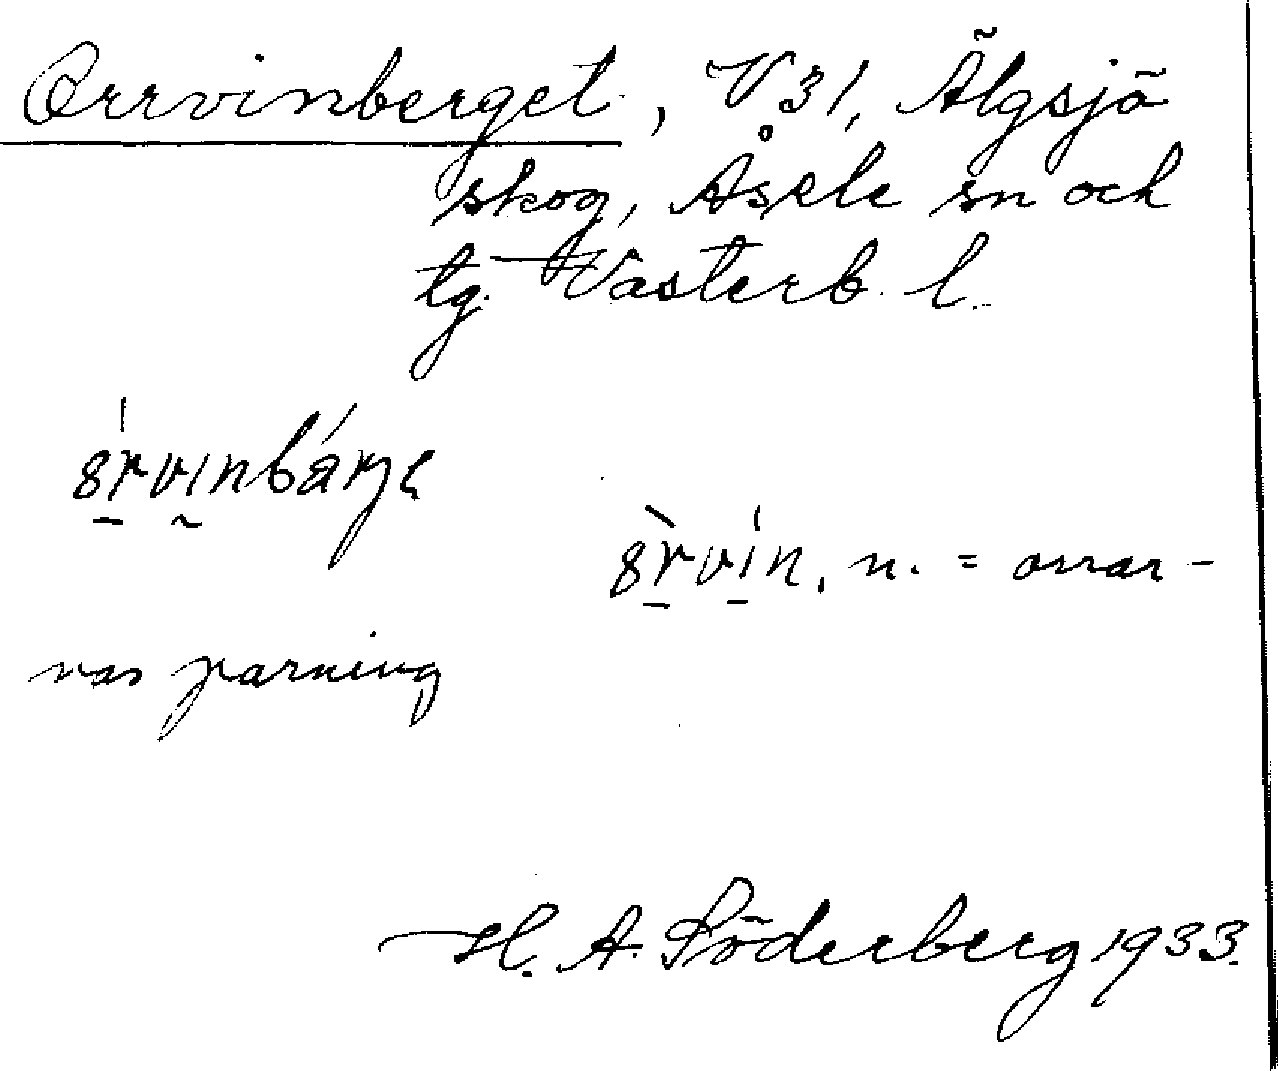 Orrvinberget, V31, Älgsjö
skog, Åsele sn och
tg. Västerb. l.
n. = orrar-
nas parning
H. A. Söderberg 1933.